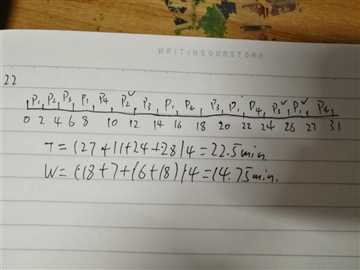 WRITINGOURSTORY
22
P₁ P₂ P₃ P₁ P₄ P₂ P₃ P₁ P₄ P₃ P₁ P₄ P₃ P₁ P₄
0 2 4 6 8 10 12 14 16 18 20 22 24 26 27 31
T=(27+11+24+28)/4=22.5min
W=(18+7+16+18)/4=14.75min.